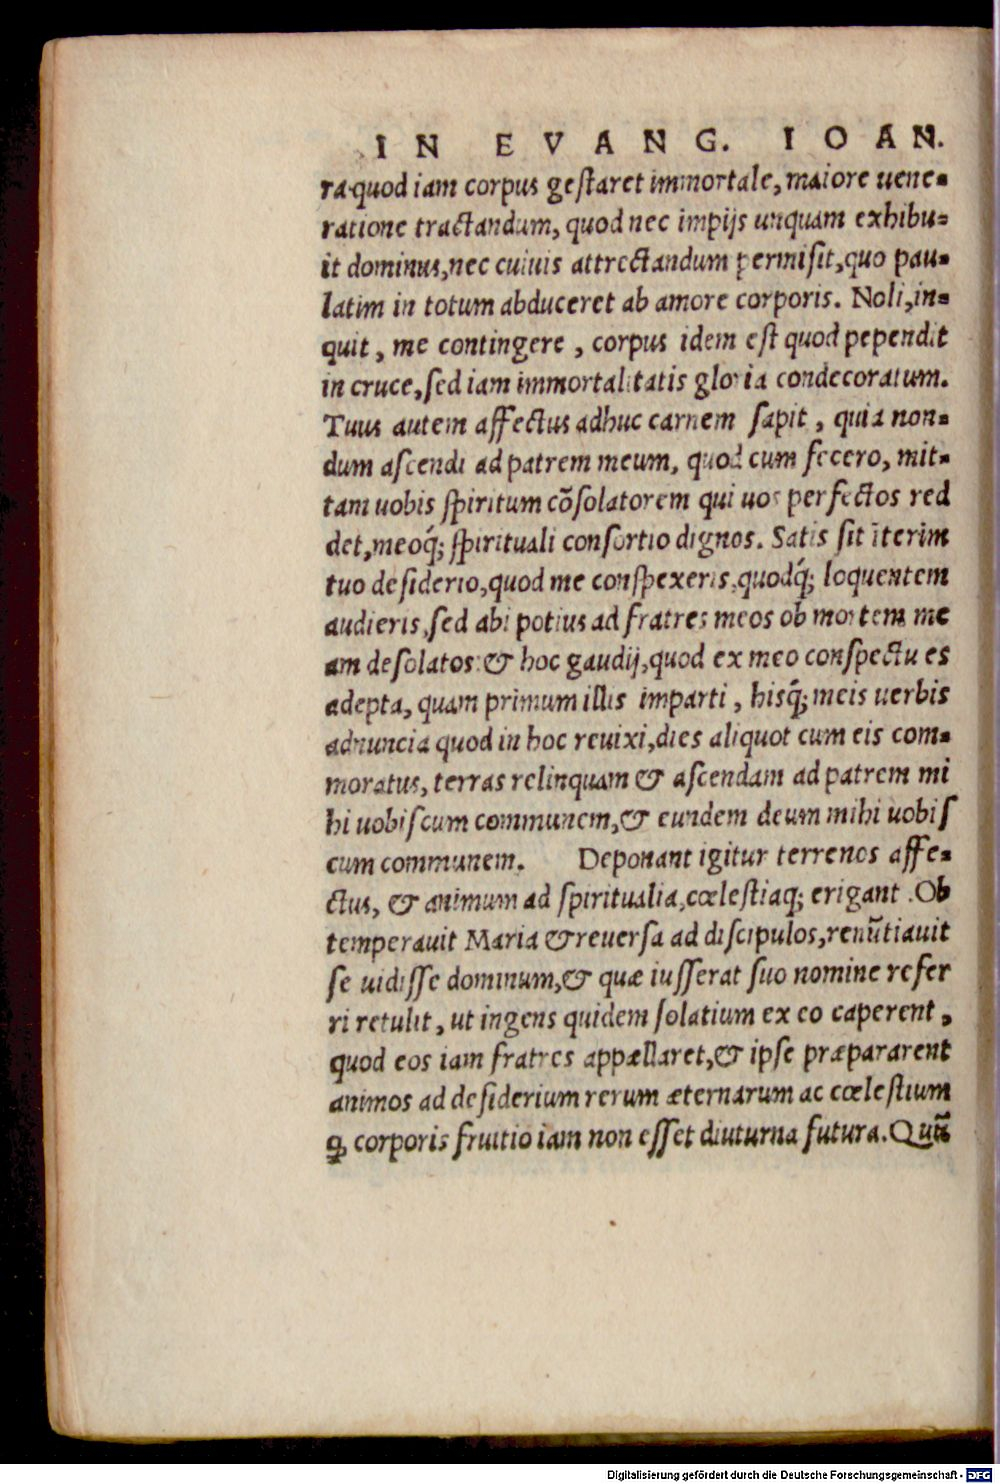 IN EVANG. IOAN.
ra quod iam corpus geſtaret immortale, maiore uene-
ratione tractandum, quod nec impijs unquam exhibu-
it dominus, nec cuiuis attrectandum permiſit, quo pau-
latim in totum abduceret ab amore corporis. Noli, in-
quit, me contingere, corpus idem eſt quod pependit
in cruce, ſed iam immortalitatis gloria condecoratum.
Tuus autem affectus adhuc carnem ſapit, quia non-
dum aſcendi ad patrem meum, quod cum fecero, mit-
tam uobis ſpiritum cõſolatorem qui uos perfectos red
det, meoq́; ſpirituali conſortio dignos. Satis ſit ĩterim
tuo deſiderio, quod me conſpexeris, quodq́; loquentem
audieris, ſed abi potius ad fratres meos ob mortem me
am deſolatos: & hoc gaudij, quod ex meo conſpectu es
adepta, quam primum illis imparti, hisq́; meis uerbis
adnuncia quod in hoc reuixi, dies aliquot cum eis com-
moratus, terras relinquam & aſcendam ad patrem mi
hi uobiſcum communem, & eundem deum mihi uobiſ
cum communem. Deponant igitur terrenos affe-
ctus, & animum ad ſpiritualia, cœleſtiaq; erigant. Ob
temperauit Maria & reuerſa ad diſcipulos, renũtiauit
ſe uidiſſe dominum, & quæ iuſſerat ſuo nomine refer
ri retulit, ut ingens quidem ſolatium ex eo caperent,
quod eos iam fratres appællaret, & ipſe præpararent
animos ad deſiderium rerum æternarum ac cœleſtium
ꝗ corporis fruitio iam non eſſet diuturna futura. Quũ